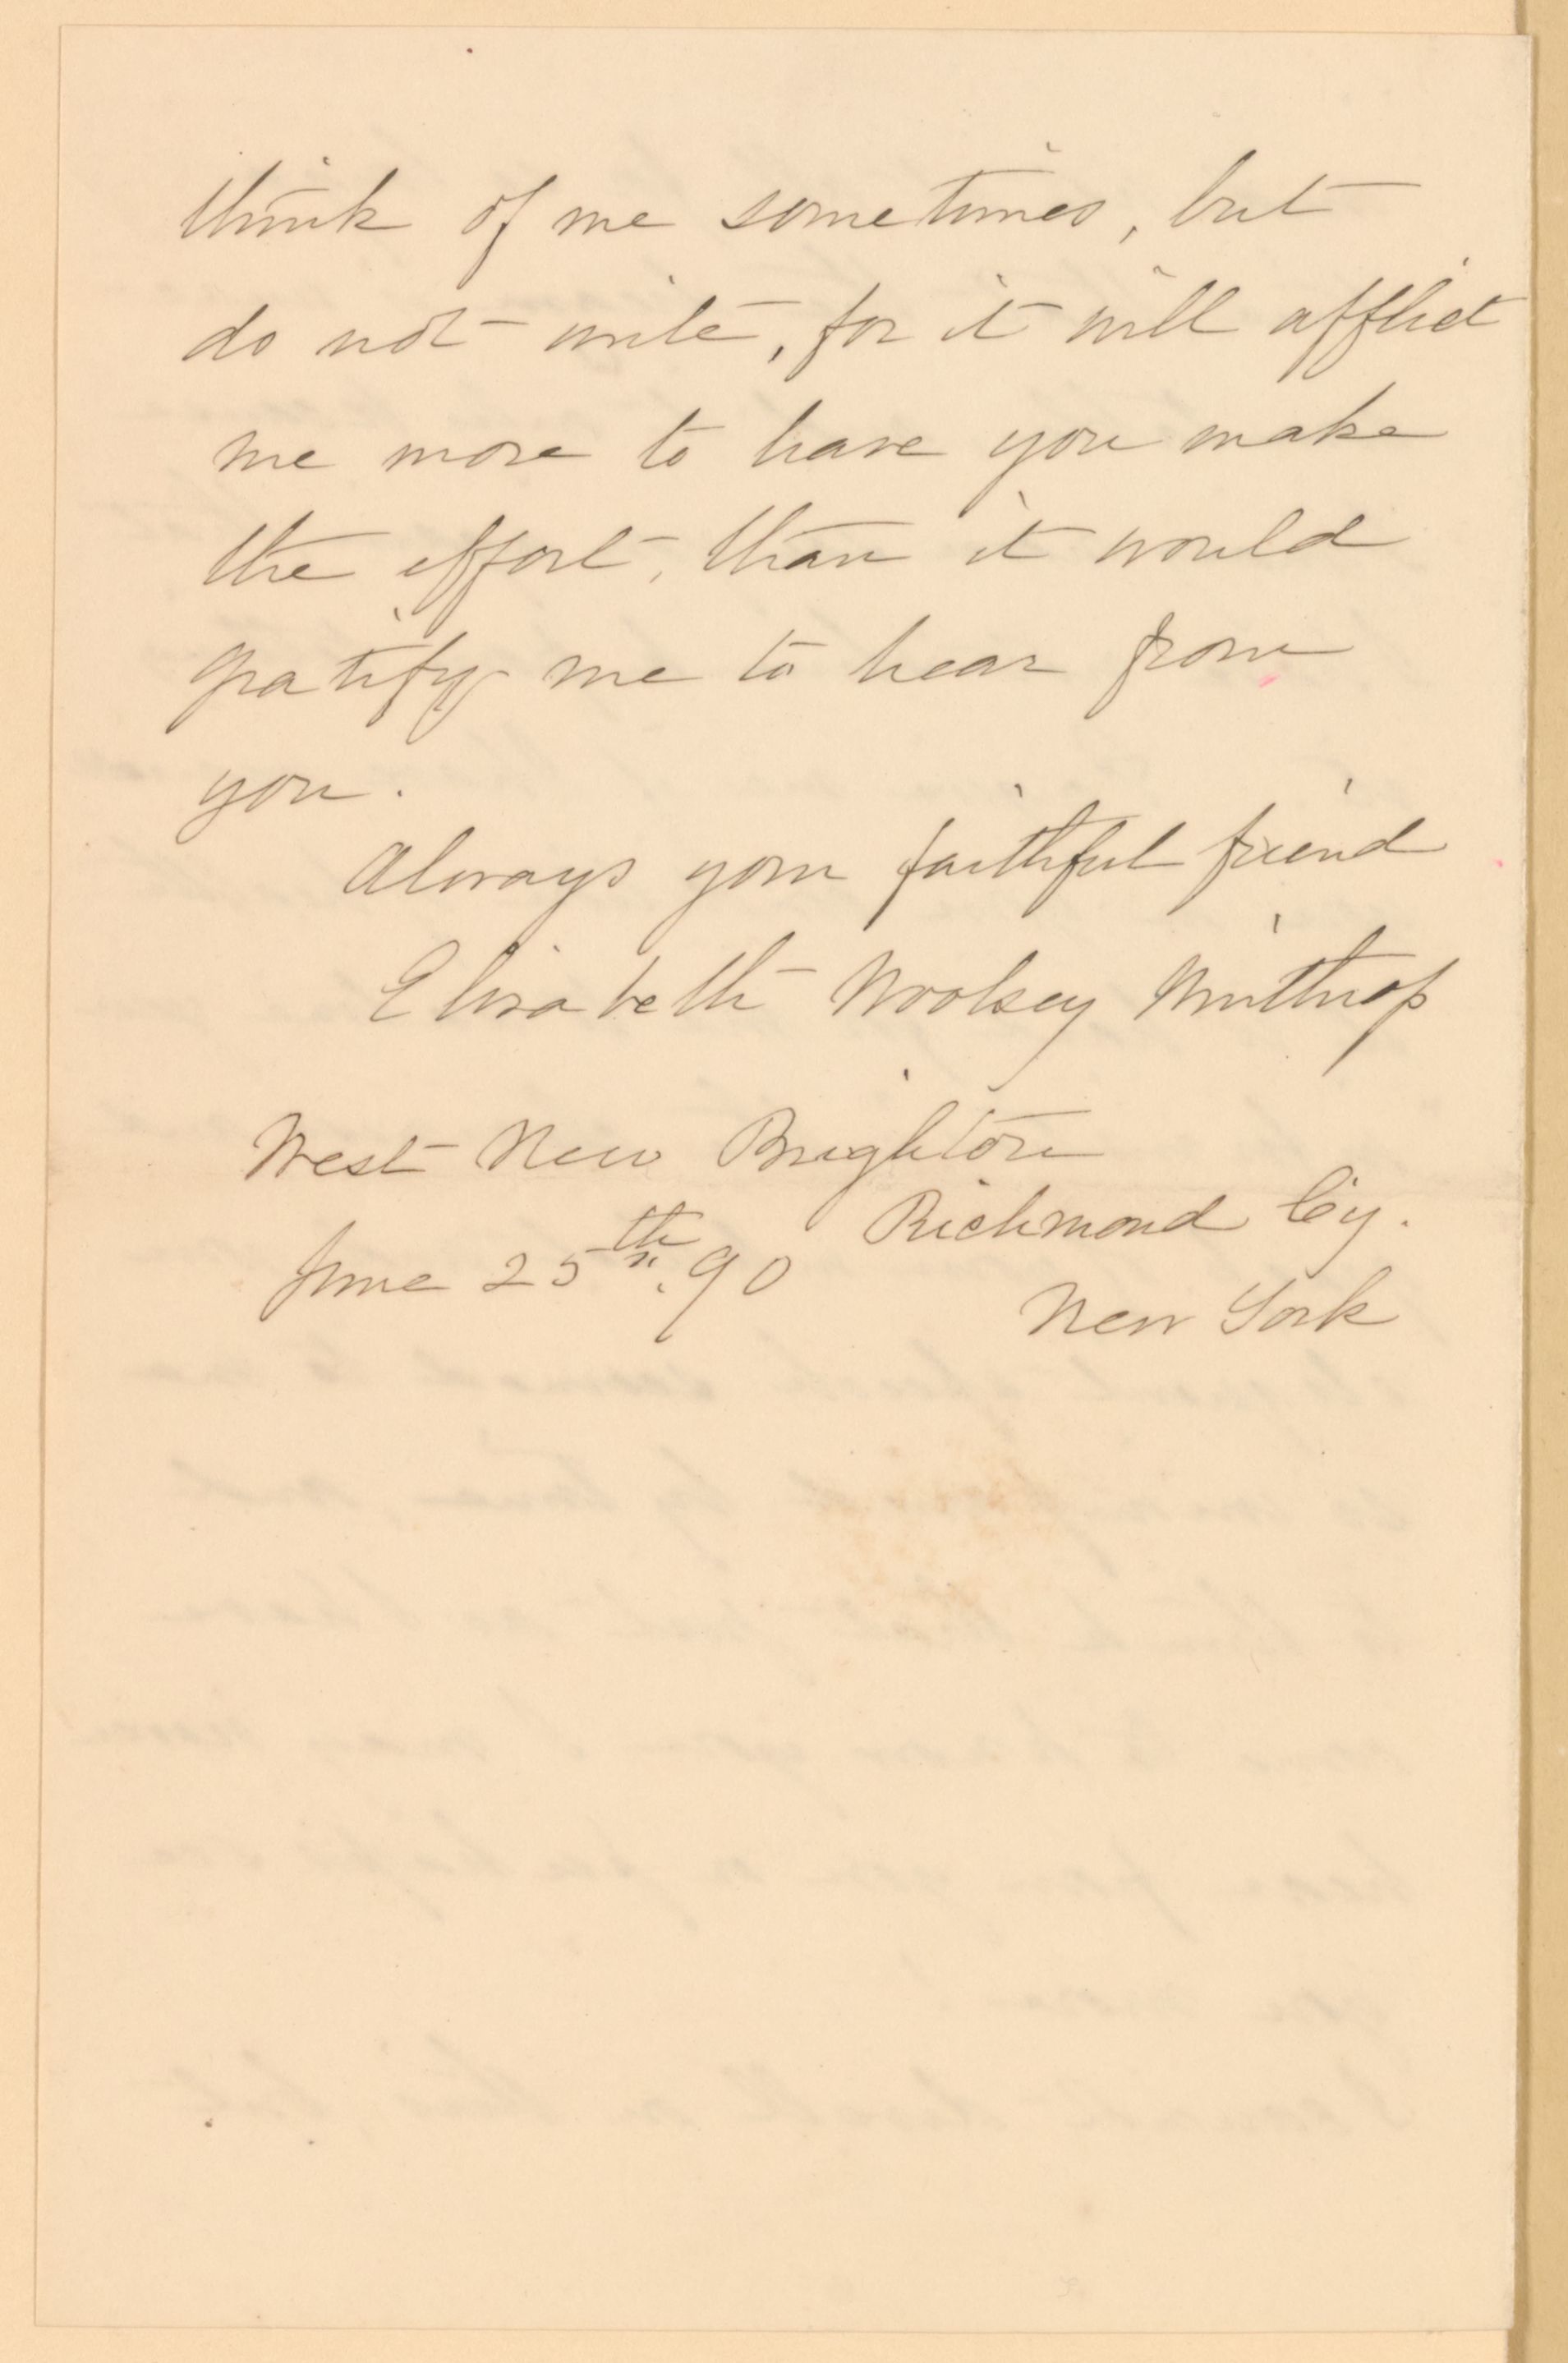 think of me sometimes, but
do not write, for it will afflict
me more to have you make
the effort, than it would
gratify me to hear from
you.
Always your faithful friend
Elizabeth Woolsey Winthrop
West New Brighton
Richmond Cy.
June 25th. 90
New York